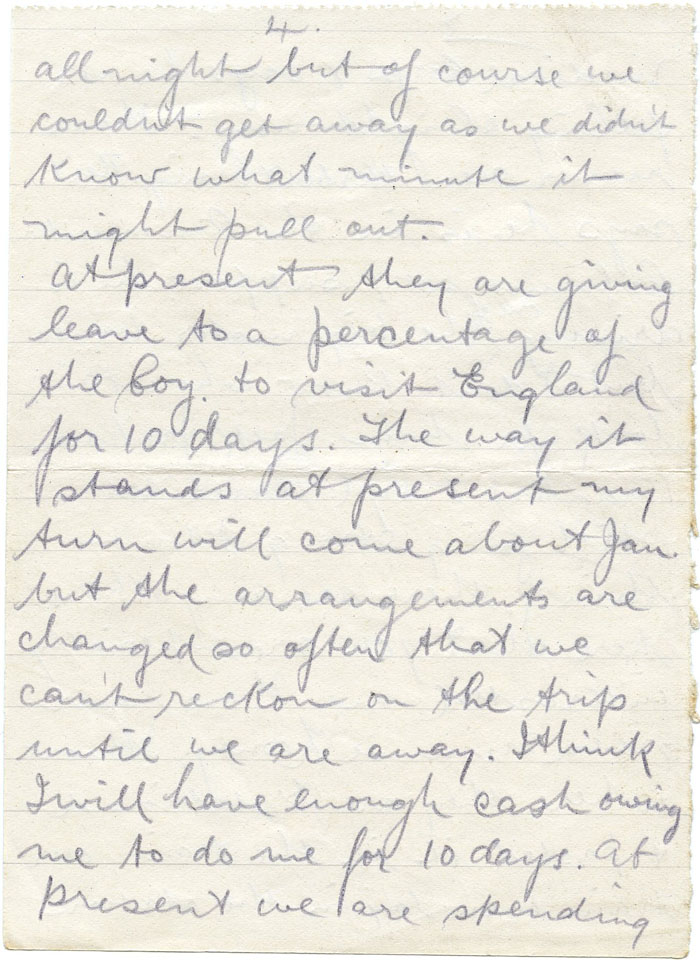 4.
all night but of course we
couldn't get away as we didn't
know what minute it
might pull out.
At present they are giving
leave to a percentage of
the Coy. to visit England
for 10 days. The way it
stands at present my
turn will come about Jan.
but the arrangements are
changed so often that we
can't reckon on the trip
until we are away. I think
I will have enough cash owing
me to do me for 10 days. At
present we are spending